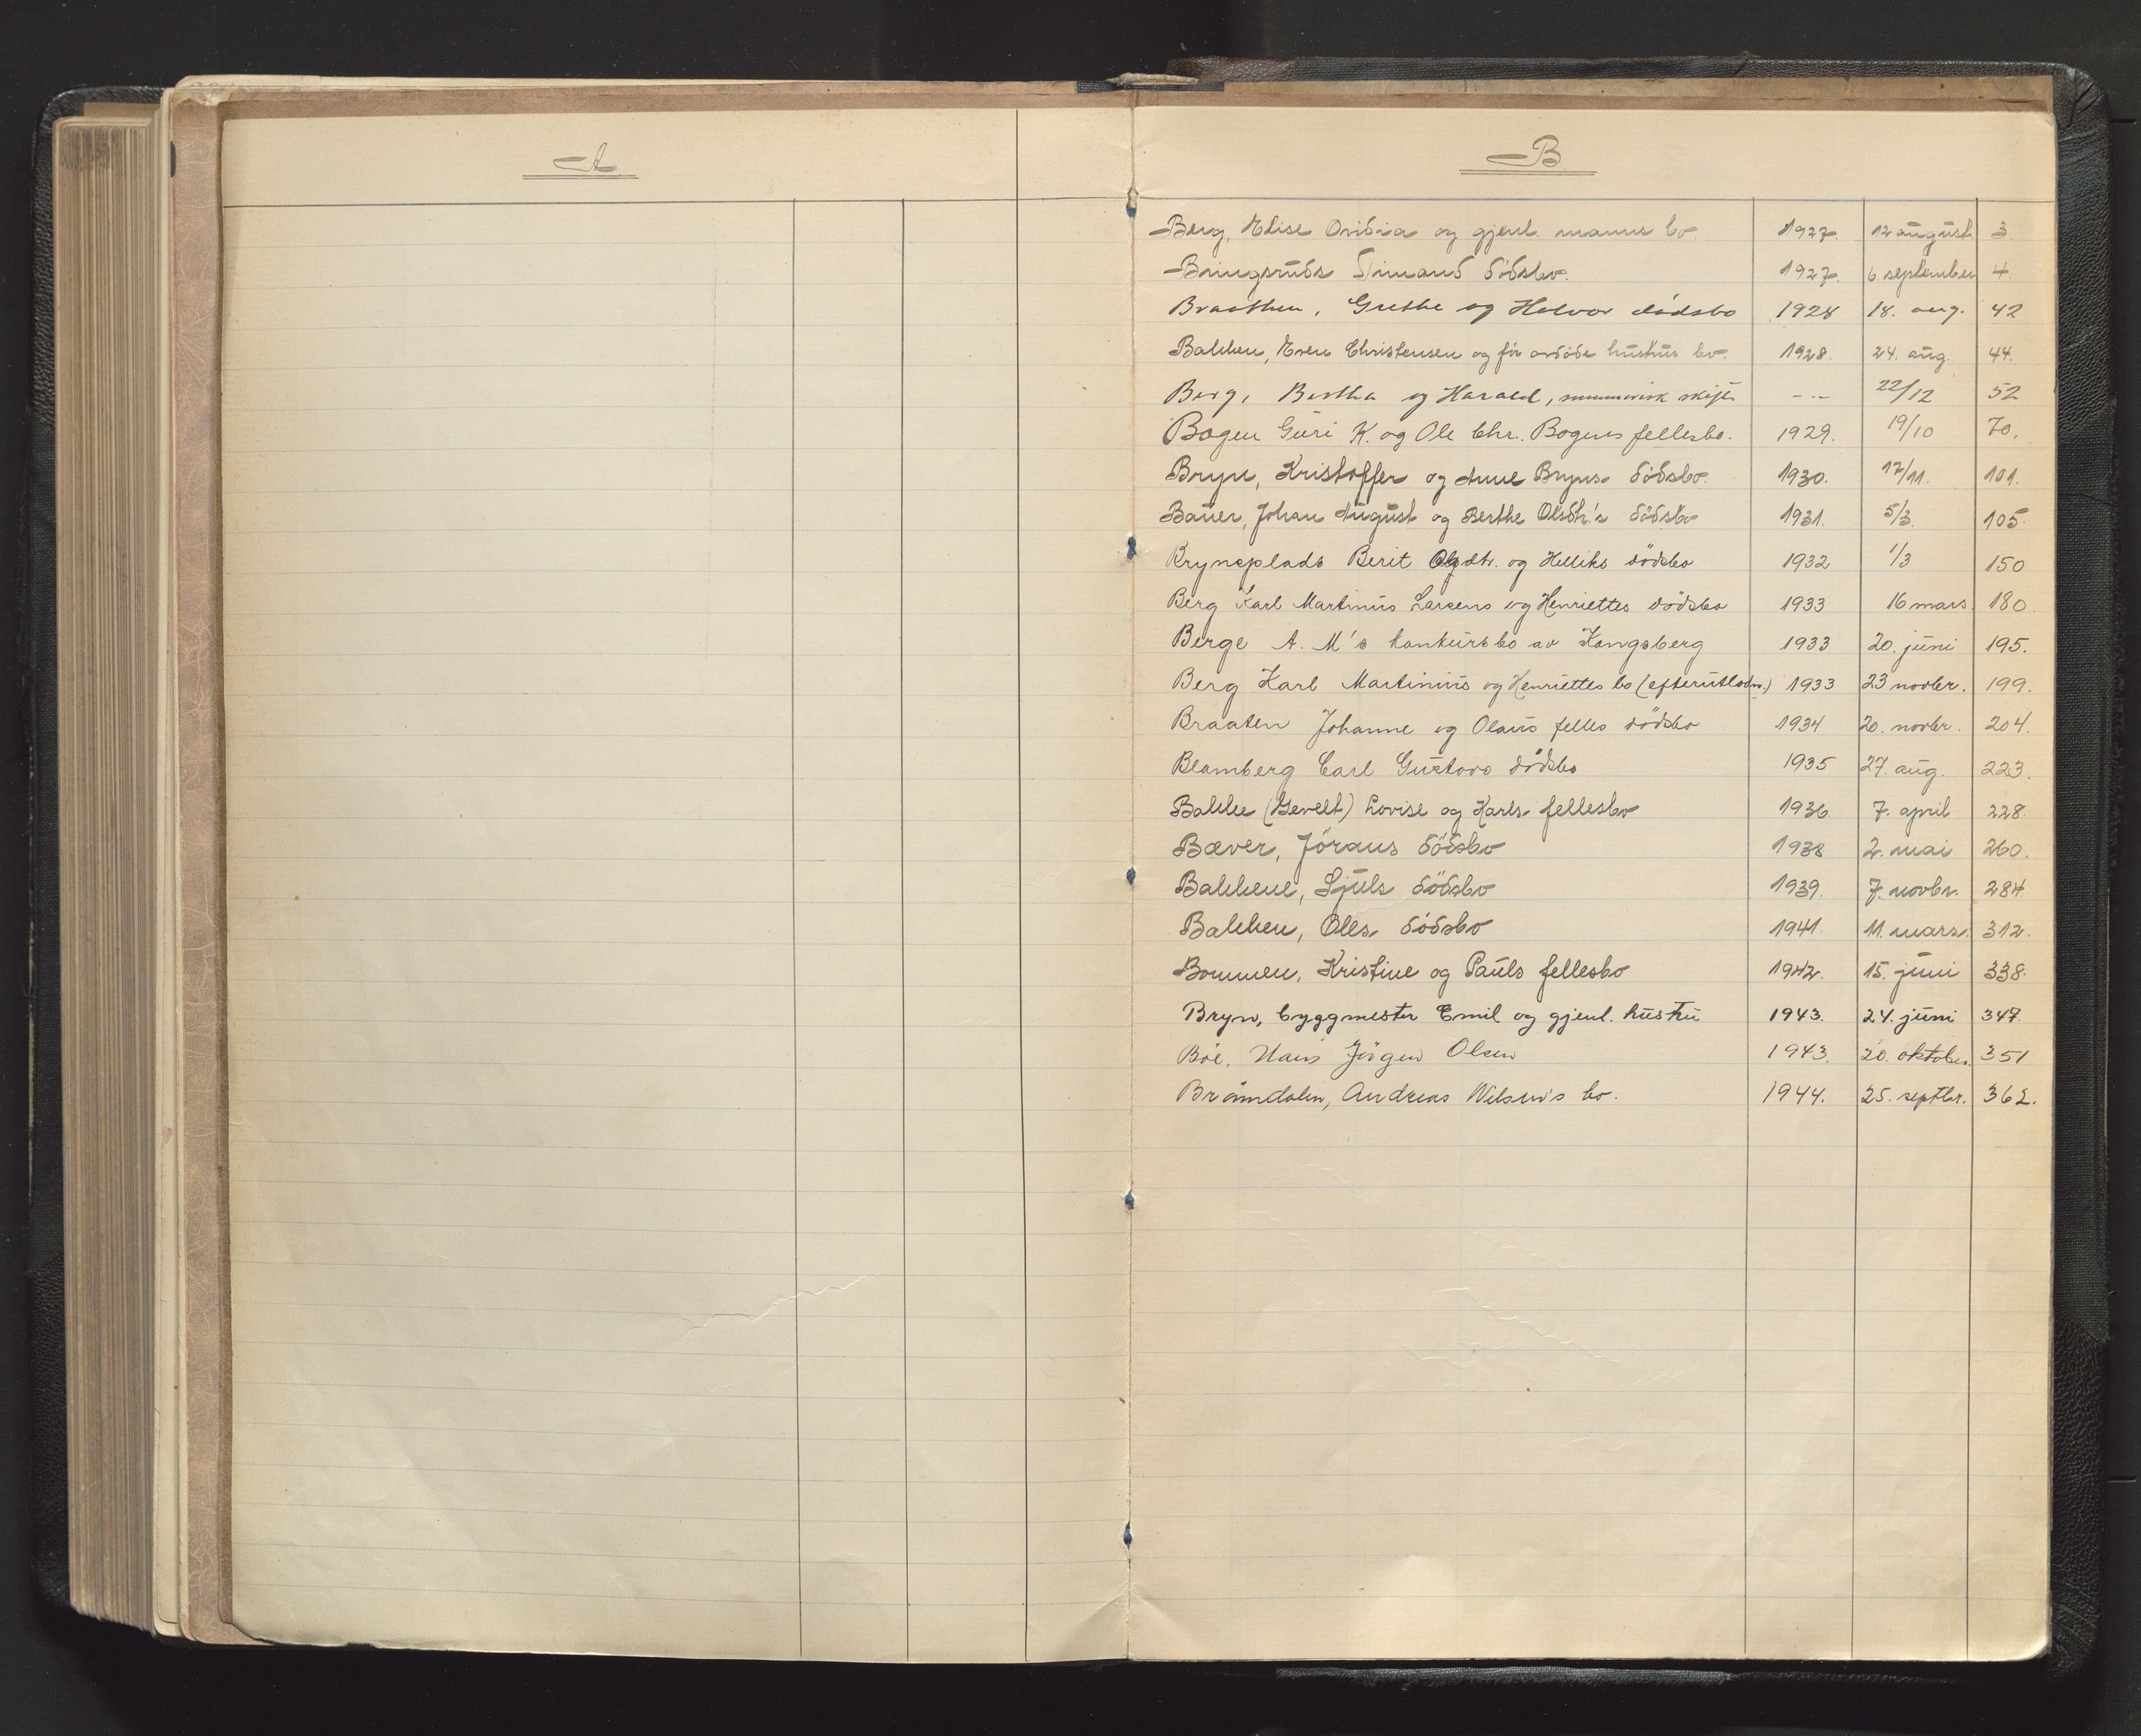 A
B
Berg, Elise Ovidia og gjenl. manns bo. 1927. 12 august 3
Bringsruds Simand dödsbo. 1927. 6. september 4.
Braathen, Grethe og Halvor dödsbo 1928 18. aug. 42
Bakken, Even Christensen og för avdöde hustrus bo. 1928. 24. aug. 44.
Berg, Bertha og Harald, summarisk skifte -"- 22/12 52
Bogen Guri K. og Ole Chr. Bogens fellesbo. 1929. 19/10 70.
Bryn, Kristoffer og Anne Bryns dödsbo. 1930. 17/11. 101.
Bauer, Johan August og Berthe Olsdtr.'s dödsbo 1931. 5/3. 105.
Brynsplads Berit Olsdtr. og Helliks dödsbo 1932 1/3 150
Berg Karl Martinius Larsens og Henriettes dödsbo 1933 16 mars. 180.
Berge A. M's konkursbo av Kongsberg 1933 20. juni 195.
Berg Karl Martinius og Henriettes bo (efterutlodn.) 1933 23 novbr. 199.
Braaten Johanne og Olaus felles dödsbo 1934 20. novbr. 204.
Blomberg Carl Gustavs dödsbo 1935 27. aug. 223.
Bakke (Gevelt) Lovise og Karls fellesbo 1936 7. april 228.
Bæver, Jörans dödsbo 1938 2. mai 260.
Bakkene, Sjuls dödsbo 1939. 7. novbr. 284
Bakken, Olls dödsbo 1941. 11. mars. 312.
Bommen, Kristine og Pauls fellesbo 1942. 15. juni 338.
Bryn, byggmester Emil og gjenl. hustru 1943. 24. juni 347
Böe, Hans Jörgen Olsen 1943. 20. oktober. 351
Bränndalen, Andreas Nilsen's bo. 1944. 25. septbr. 362.